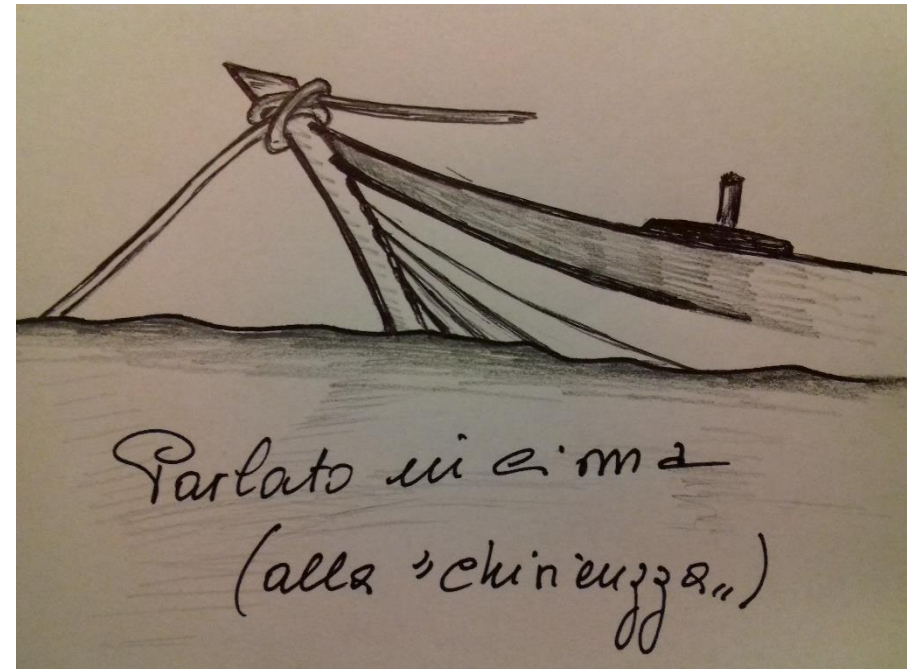 Parlato in cima
(alla "chirienzza„)